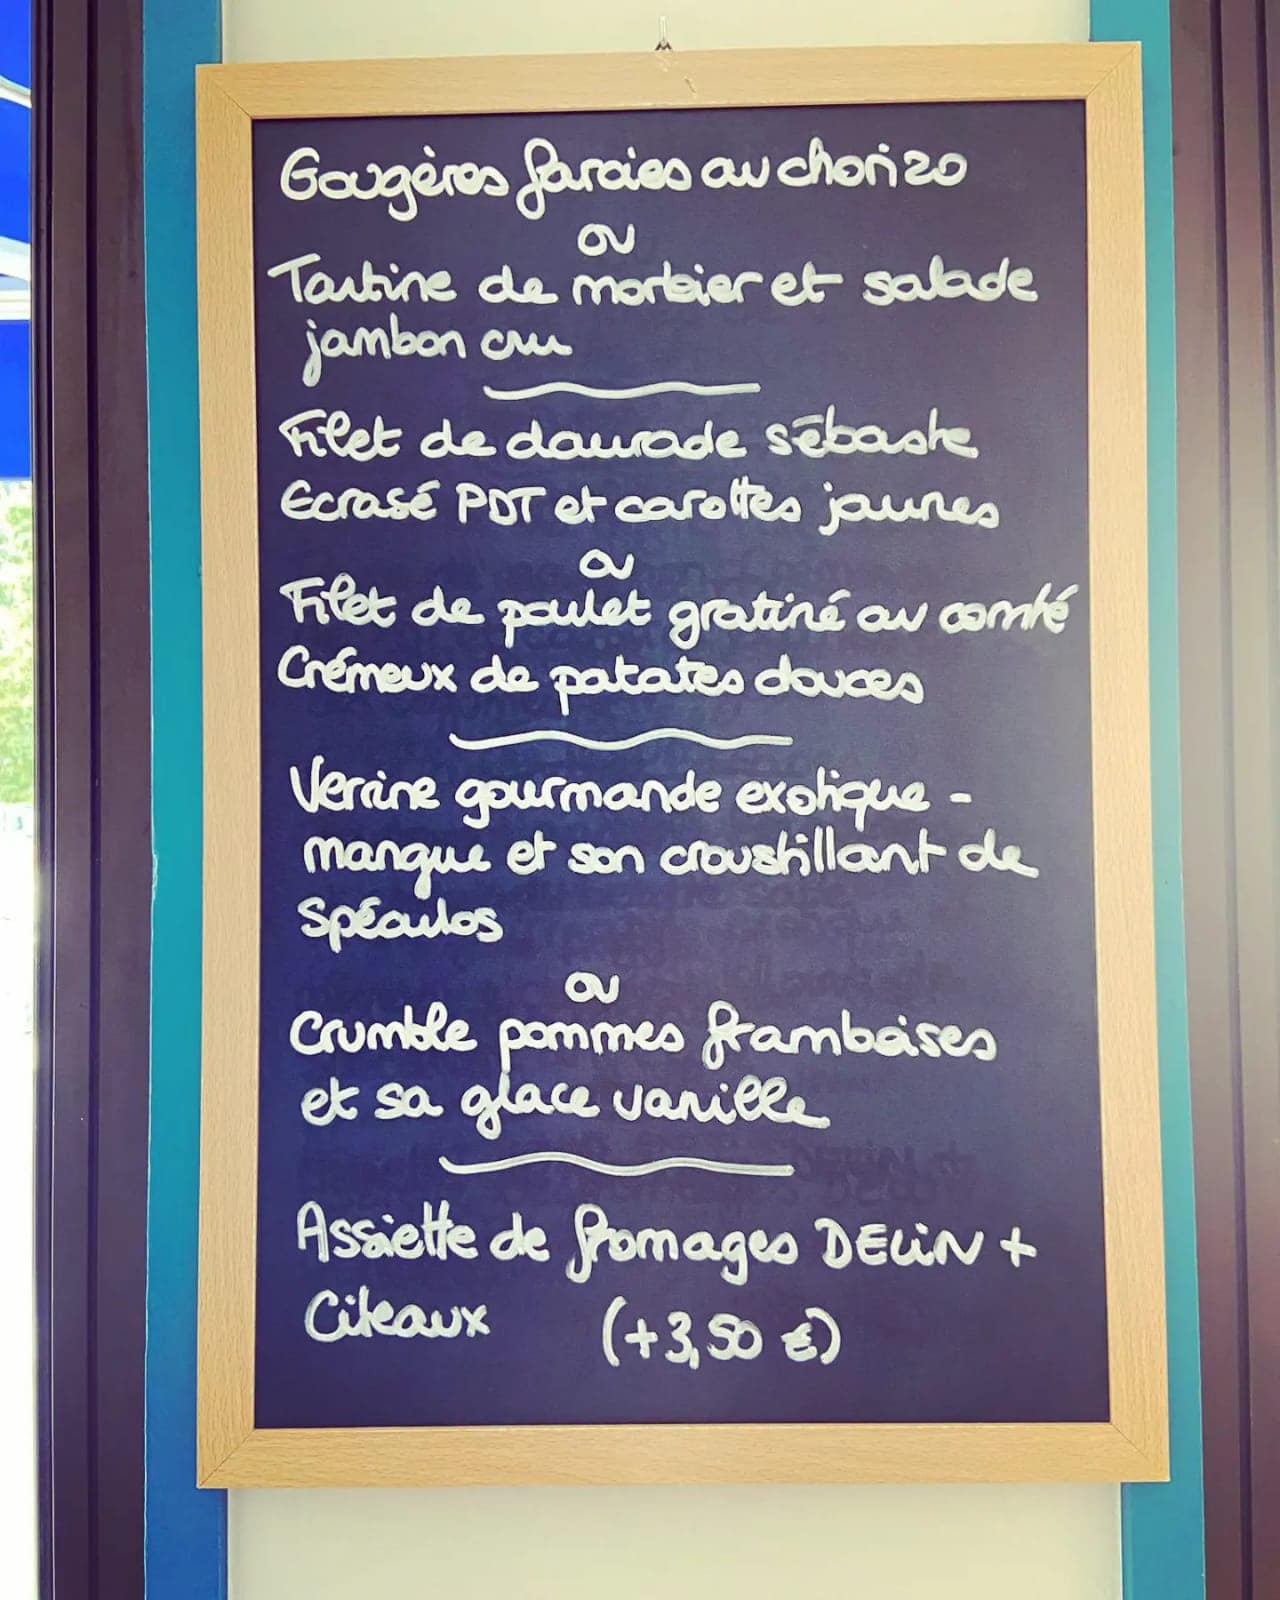 Gougères farcies au chorizo
ou
Tartine de morbier et salade
jambon cru
Filet de daurade sébaste
Ecrasé PDT et carottes jaunes
ou
Filet de poulet gratiné au comté
Crémeux de patates douces
Verrine gourmande exotique -
mangue et son croustillant de
Spéculos
ou
Crumble pommes framboises
et sa glace vanille
Assiette de fromages DELIN +
Citeaux (+3,50 €)